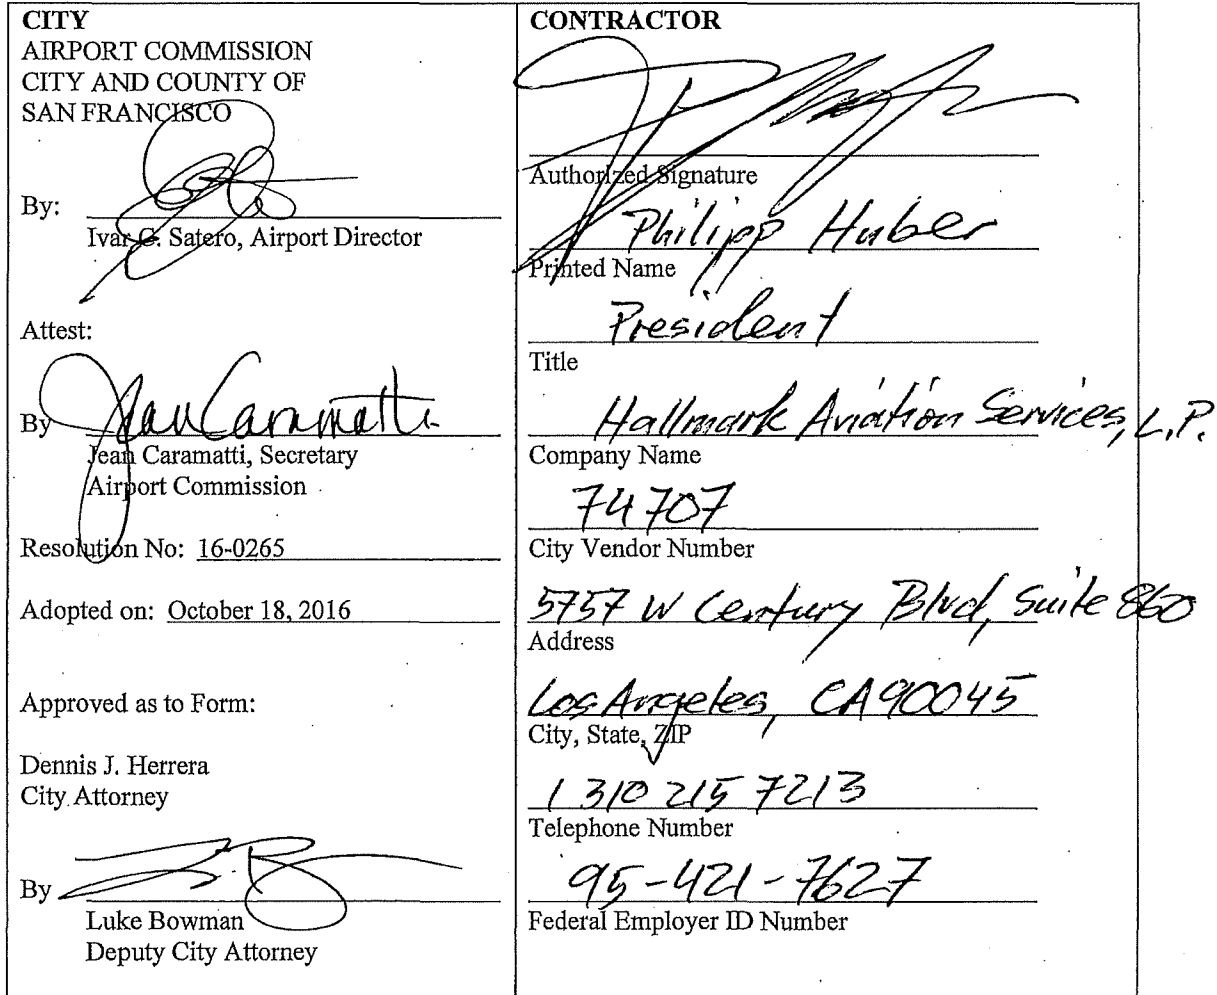 CITY
AIRPORT COMMISSION
CITY AND COUNTY OF
SAN FRANCISCO
By:
Ivar C. Satero, Airport Director
Attest:
By Jean Caramatti
Jean Caramatti, Secretary
Airport Commission
Resolution No: 16-0265
Adopted on: October 18, 2016
Approved as to Form:
Dennis J. Herrera
City Attorney
By
Luke Bowman
Deputy City Attorney
CONTRACTOR
Authorized Signature
Philipp Huber
Printed Name
President
Title
Hallmark Aviation Services, L.P.
Company Name
74707
City Vendor Number
5757 W Century Blvd, Suite 860
Address
Los Angeles, CA 90045
City, State, ZIP
1 310 215 7213
Telephone Number
95-421-7627
Federal Employer ID Number